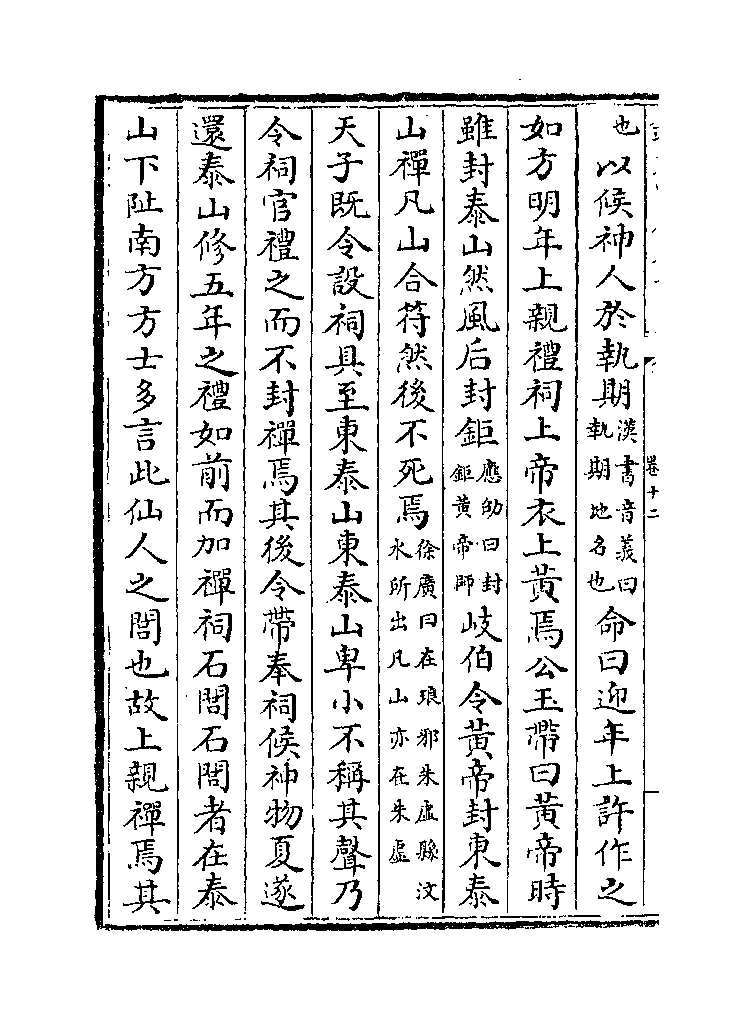 也以候神人於執期漢書音義曰執期地名也命曰迎年上許作之
如方明年上親禮祠上帝衣上黃焉公玉帶曰黃帝時
雖封泰山然風后封鉅應劭曰封鉅黃帝師岐伯令黃帝封東泰
山禪凡山合符然後不死焉徐廣曰在琅邪朱虛縣汶水所出凡山亦在朱虛
天子既令設祠具至東泰山東泰山卑小不稱其聲乃
令祠官禮之而不封禪焉其後令帶奉祠候神物夏遂
還泰山修五年之禮如前而加禪祠石閭石閭者在泰
山下阯南方方士多言此仙人之閭也故上親禪焉其
卷十二